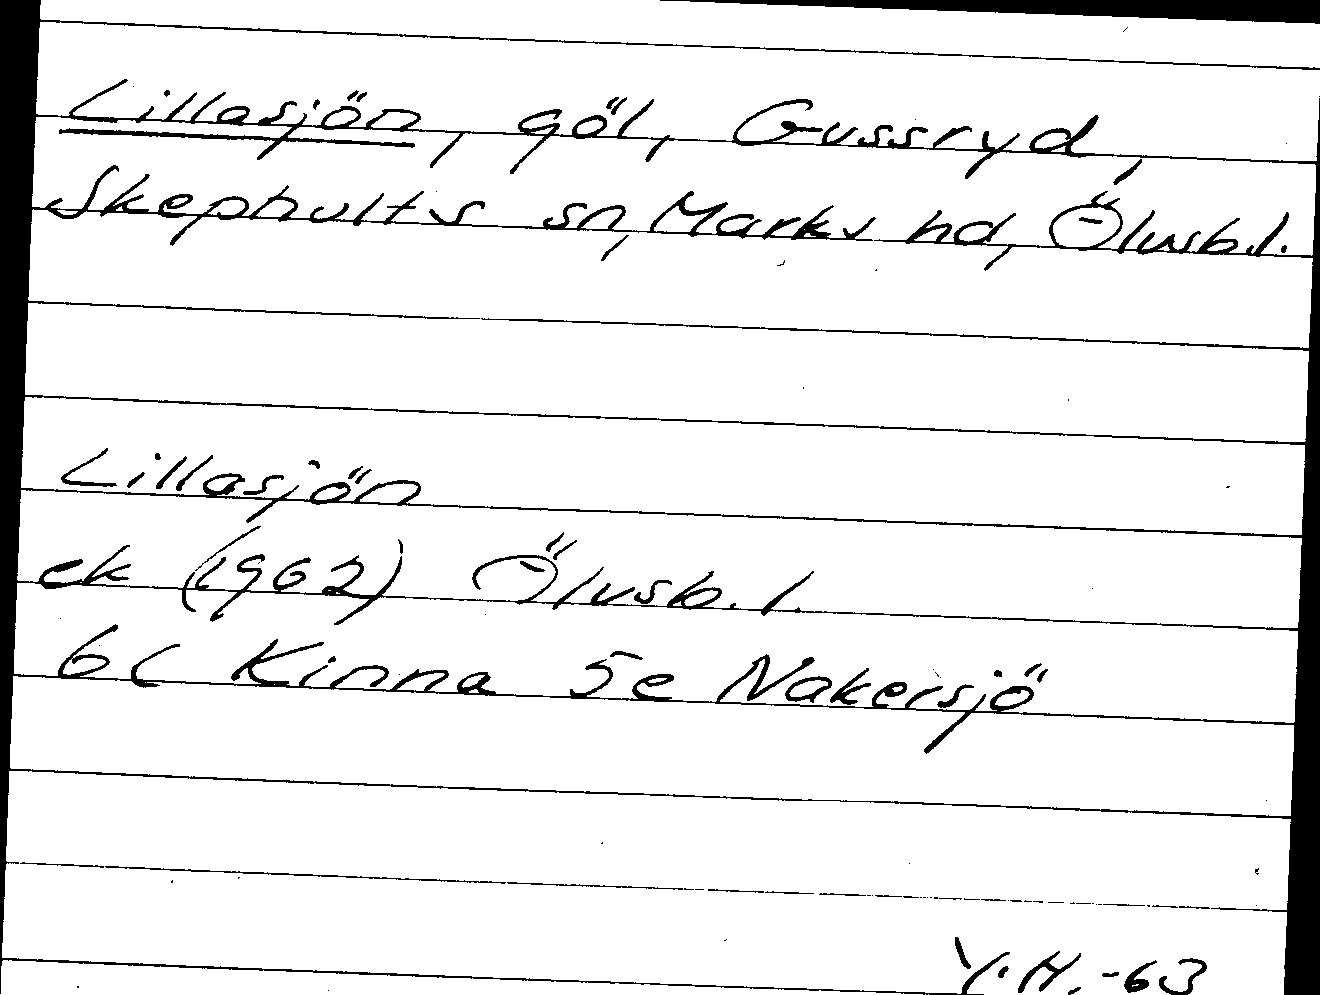 Lillasjön, göl, Gussryd,
Skephults sn, Marks hd, Älvsb.l.
Lillasjön
ek (1962) Älvsb.l.
6C Kinna 5e Nakersjö
Y.H.-63